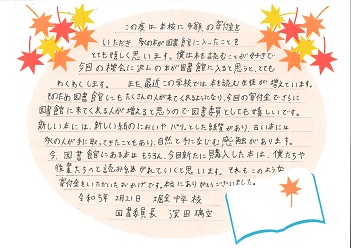 この度は本校に多額の寄付金を
いただき 多くの本が図書館に入ったことを
とても嬉しく思います。僕は本を読むことが好きで
今回の機会に沢山の本が図書館に入ると思うと、とても
わくわくします。 また、最近この学校では本を読む生徒が増えています。
そのため図書館にもたくさんの人が来てくれるようになり、今回の寄付金でさらに
図書館に来てくれる人が増えると思うので図書委員としても嬉しいです。
新しい本には、新しい紙のにおいやパリッとした紙質があり、古い本には
多くの人が手に取ってきたこともあり、自然と手になじむ感触があります。
今、図書館にある本はもちろん、今回新たに購入した本は、僕たちや
後輩たちへと読み継がれていくと思います。それもこのような
寄付金をいただいたおかげです。本当にありがとうございました。
令和5年2月21日 堀金中学校
図書委員長 深田 瑞空